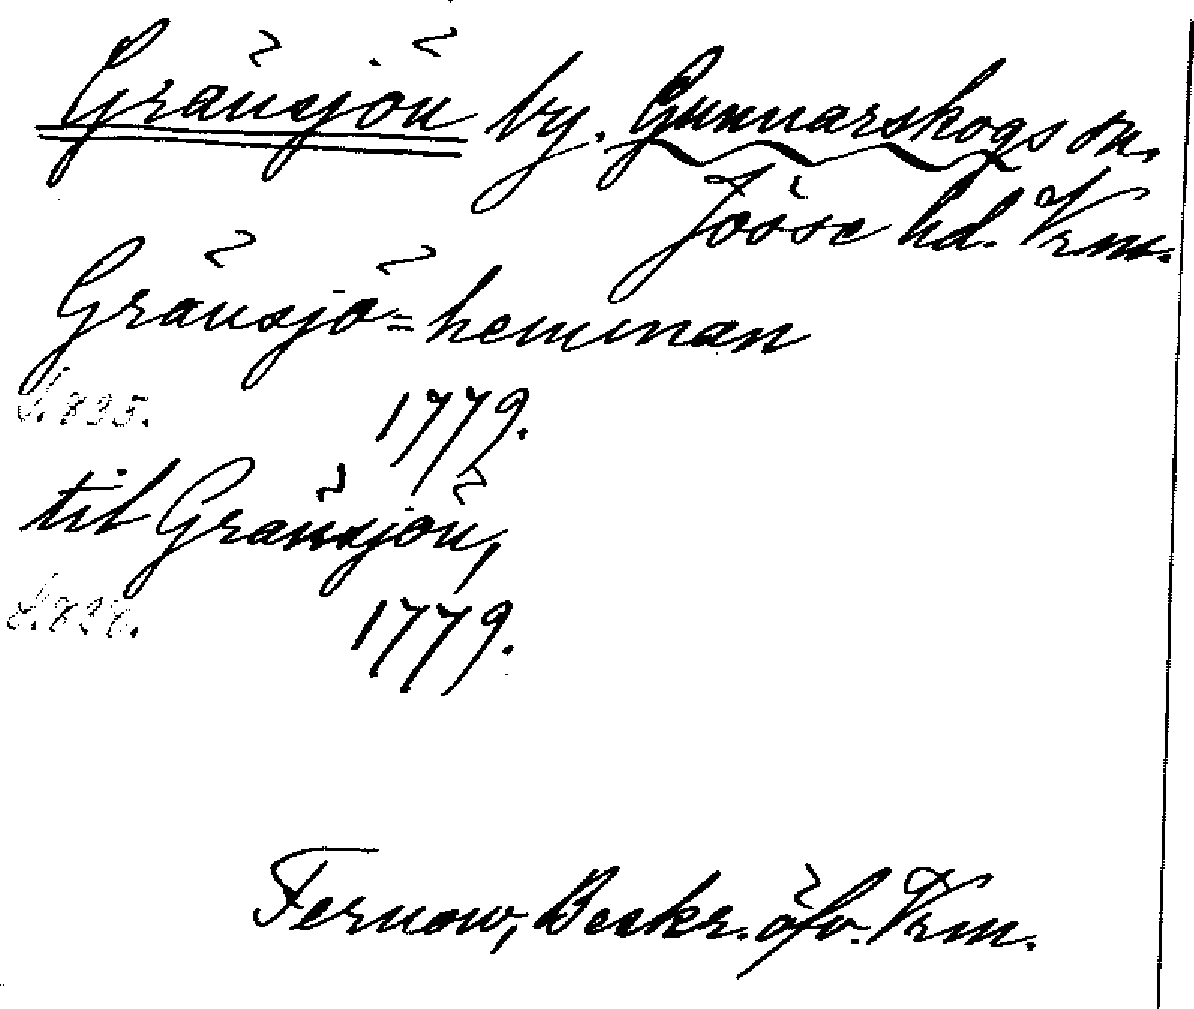 Gränsjön by. Gunnarskogs sn.
Jösse hd. Vrm.
Gränsjö=hemman
S. 835. 1779.
til Gränsjön,
S. 1779.
Fernow, Beskr. öfv. Vrm.